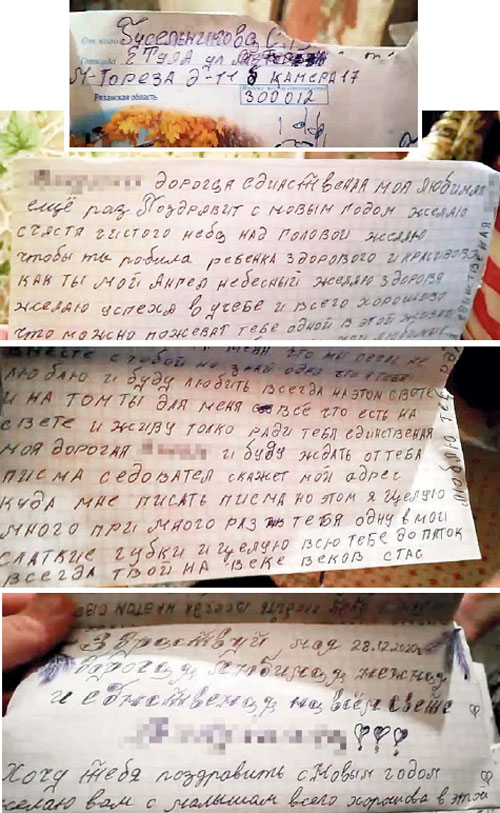 От кого Гусельникова С.
Откуда г Тула ул
М-Тореза д-11 б камера 17
Рязанская область
300012
дорогая единственая моя любимая
ещё раз Поздравит с новым годом желаю
счястя чистого неба над головой желаю
чтобы ты родила ребенка здорового и красивова
как ты мой Ангел небесный желаю здоровя
желаю успеха в учебе и всего хорошово
что можно пожеват тебе одной в этой жизни
вместе с тобой но знай одно что я тебя
люблю и буду любить всегда на этом свете
и на том ты для меня всё что есть на
свете и живу толко ради тебя единственая
моя дорогая и буду ждать от тебя
писма седовател скажет мой адрес
куда мне писать писма но этом я целую
много при много раз тебя одну в мои
слаткие губки и целую всю тебе до пяток
всегда твой на веке веков Стас
люблю тебя
Здраствуй моя 28.12.2020г
Дорогая, Любимая, нежная
и единственая, на всём свете
Хочу тебя поздравить с Новым годом
желаю вам с малышам всего хорошова в этой